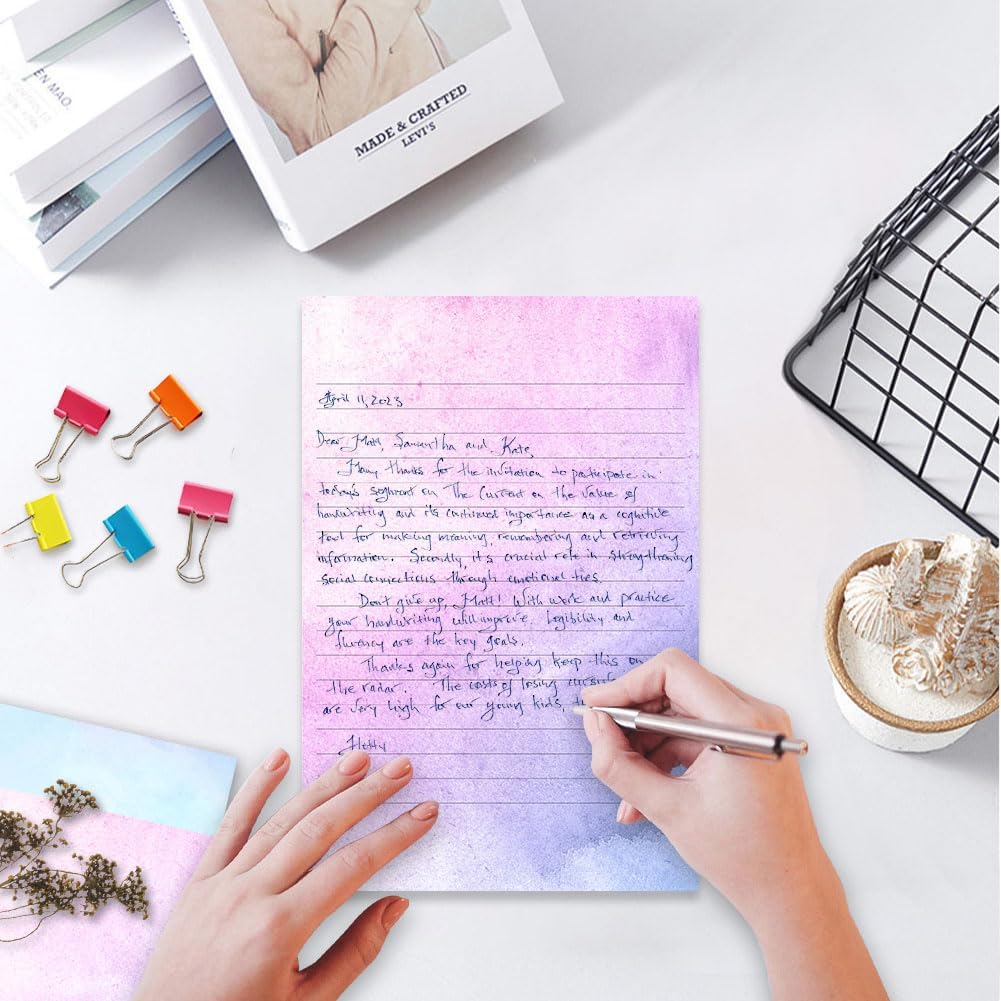 EN MAO.
MADE & CRAFTED
LEVI'S
April 11, 2023
Dear Matt, Samantha and Kate,
Many thanks for the invitation to participate in
today's segment on The Current on the value of
handwriting and its continued importance as a cognitive
tool for making meaning, remembering and retrieving
information. Secondly, it's crucial role in strengthening
social connections through emotional ties.
Don't give up, Matt! With work and practice
your handwriting will improve. Legibility and
fluency are the key goals.
Thanks again for helping keep this on
the radar. The costs of losing
are very high for our young kids,
Hetty